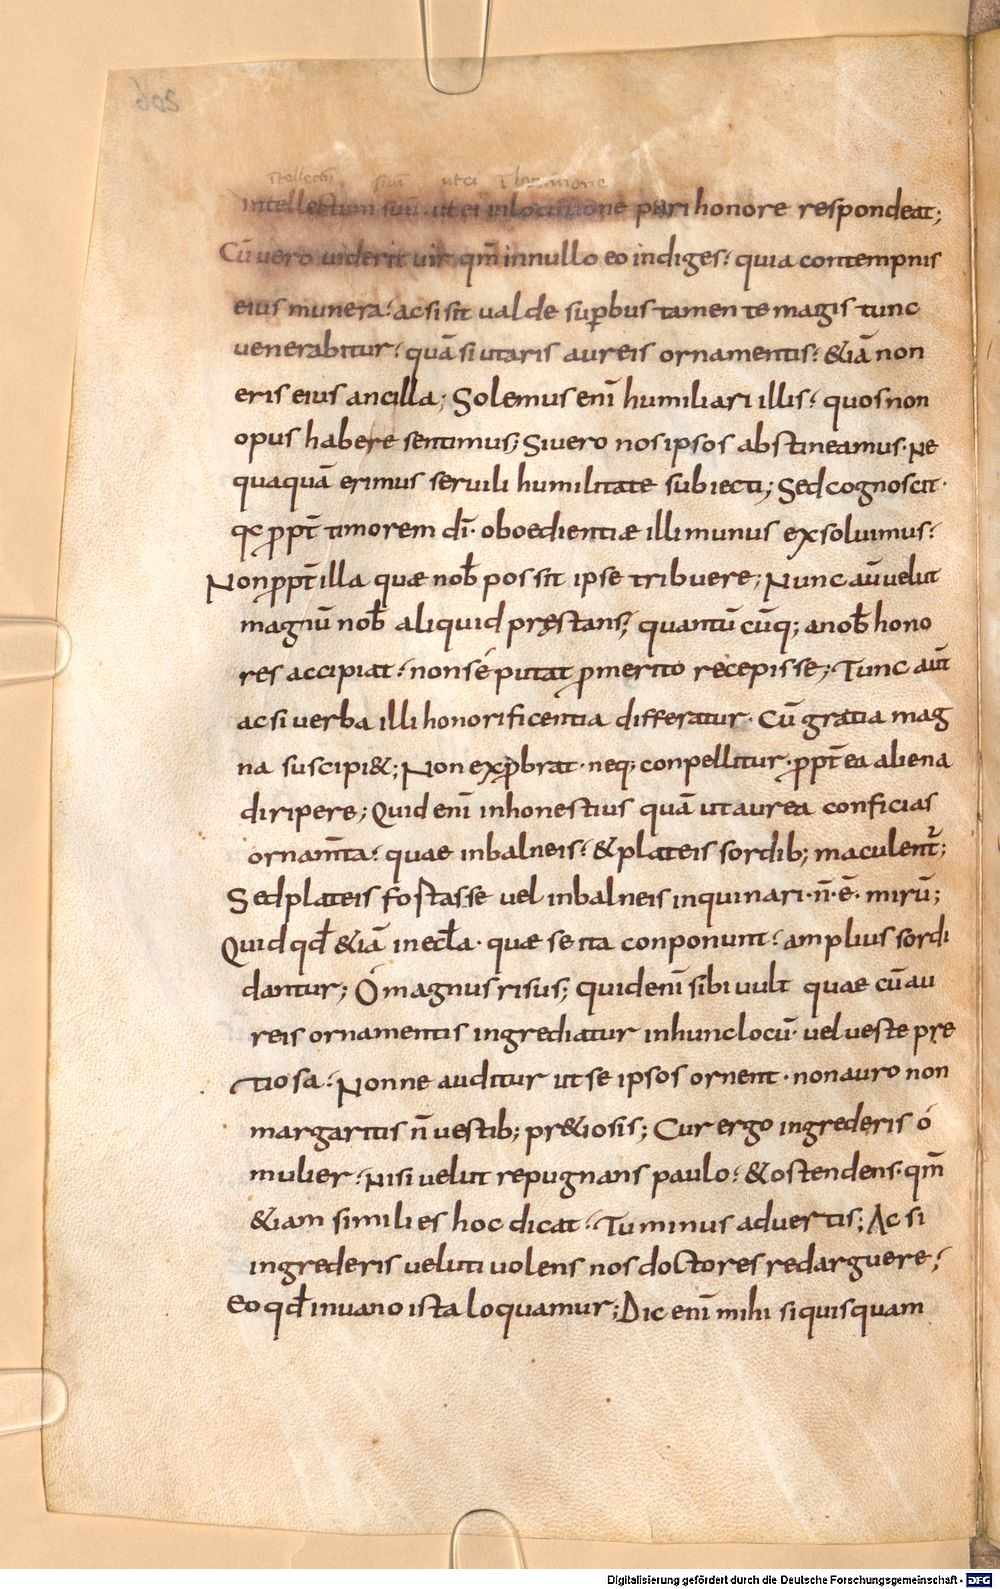 intellectū suū ut ei
intellectum suū · ut ei inlocutione pari honore respondeat;
Cū vero viderit vir qm̄ innullo eo indiges? quia contempnis
eius munera? ac si sit valde sup̱bus tamen te magis tunc
venerabitur? quā si utaris aureis ornamentis? &iā non
eris eius ancilla; Solemus enī humiliari illis? quos non
opus habere sentimus; Si vero nos ipsos abstineamus · Ne
quaquā erimus servili humilitate subiecti; Sed cognoscit ·
qđ ꝓpt̄ timorem dī · oboedientiæ illi munus exsoluimus?
Non ꝓpt̄ illa quæ nob̄ possit ipse tribuere; Nunc aū velut
magnū nob̄ aliquid pręstans; quantū cūq; a nob̄ hono
res accipiat? non sé putat ꝓmerito recepisse; Tunc aūt
ac si verba illi honorificentia differatur · Cū gratia mag
na suscipi&; Non exꝓbrat · neq; conpellitur · ꝓpt̄ ea aliena
diripere; Quid enī inhonestius quā ut aurea conficias
ornam̄ta? quae inbalneis? & plateis sordib; maculent᷑;
Sed plateis fortasse vel inbalneis inquinari · n̄ · ē · mirū;
Quid qđ &iā in eccl̄a · quæ se ita conponunt? amplius sordi
dantur; Ó magnus risus; quid enī sibi vult quae cū au
reis ornamentis ingrediatur inhunc locū · vel veste pre
tiosa? Nonne auditur ut se ipsos ornent · non auro non
margaritis n̄ vestib; pr&iosis; Cur ergo ingrederis ó
mulier? Nisi velut repugnans paulo? & ostendens · qm̄
&iam si milies hoc dicat? Tu minus advertis; Ac si
ingrederis veluti volens nos doctores redarguere?
Eo qđ in vano ista loquamur; Dic enī mihi si quisquam
206
Digitalisierung gefördert durch die Deutsche Forschungsgemeinschaft - DFG